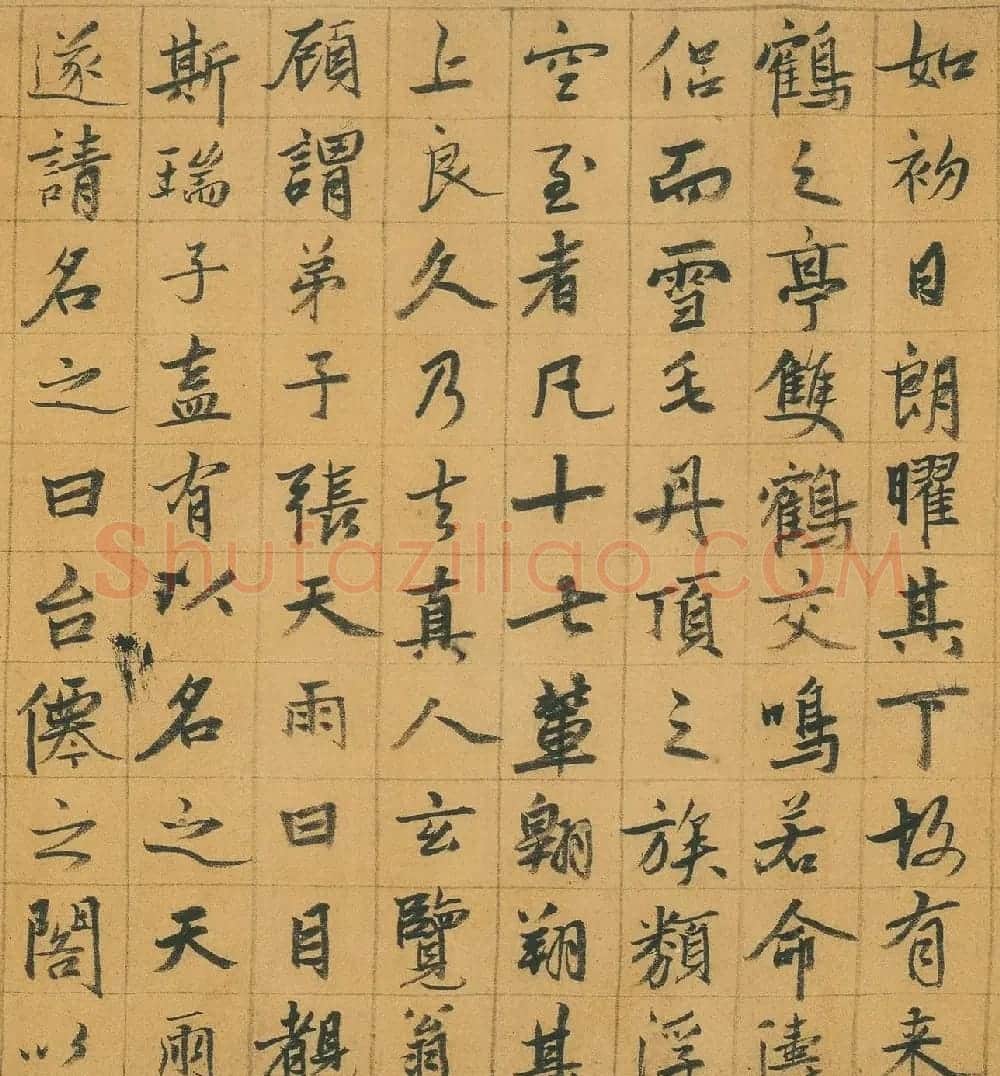 如初日朗曜其下故有来
鶴之亭雙鶴交鳴若命儔
侣而雪毛丹頂之族類浮
空至者凡十七輩翱翔其
上良久乃去真人玄覽翁
顧謂弟子張天雨曰目覩
斯瑞子盍有以名之天雨
遂請名之曰台僊之閣以
Shufaziliao.COM